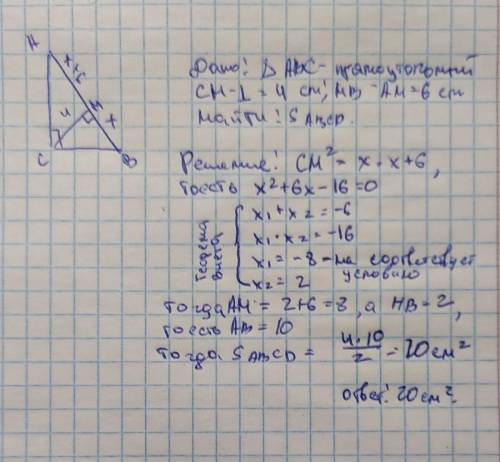 A
x+6
4
H
x
C
B
Дано: Δ ABC - прямоугольный
CH-⊥ = 4 cm, HB - AH = 6 cm
Найти: S ABCD.
Решение: CH² = x · x+6,
тоесть x²+6x-16=0
Теорема Виета
x₁+x₂ = -6
x₁·x₂ = -16
x₁ = -8 - не соответствует условию
x₂ = 2
тогда AH = 2+6=8, а HB=2,
тоесть AB = 10
тогда S ABCD = 4·10/2 = 20 см²
ответ: 20 см².